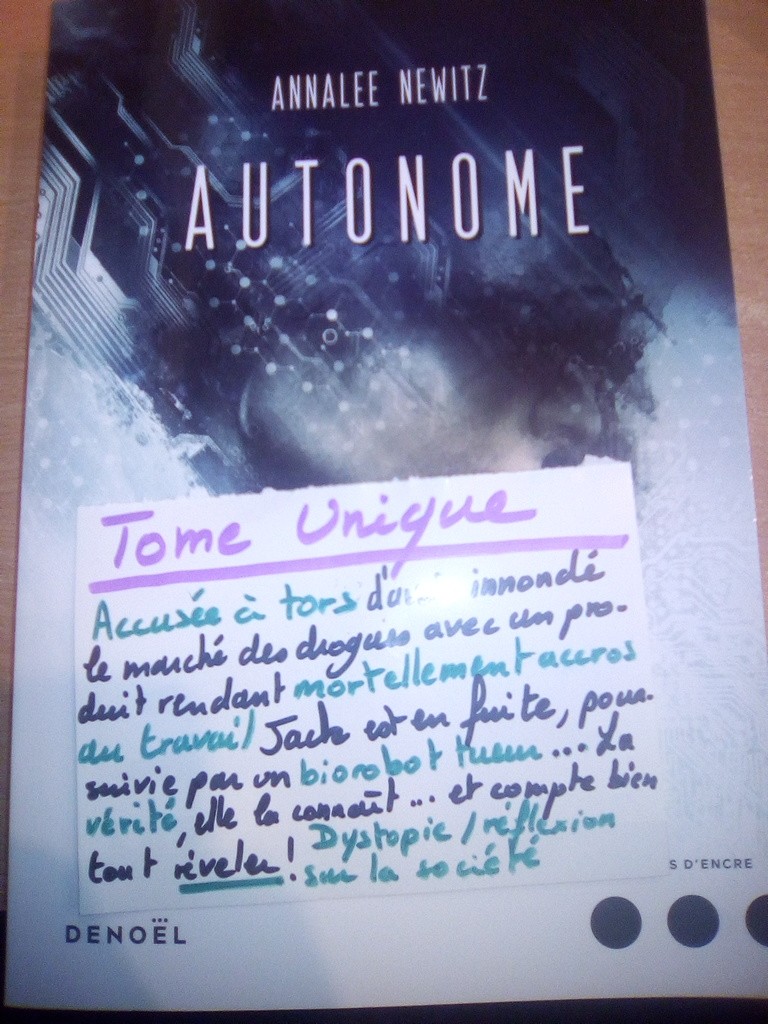 ANNALEE NEWITZ
AUTONOME
Tome Unique
Accusée à tors d'avoir innondé
le marché des drogues avec un pro-
duit rendant mortellement accros
au travail Jack est en fuite, pour-
suivie par un biorobot tueur... La
vérité, elle la connaît... et compte bien
tout révéler! Dystopie / réflexion
sur la société
S D'ENCRE
DENOËL